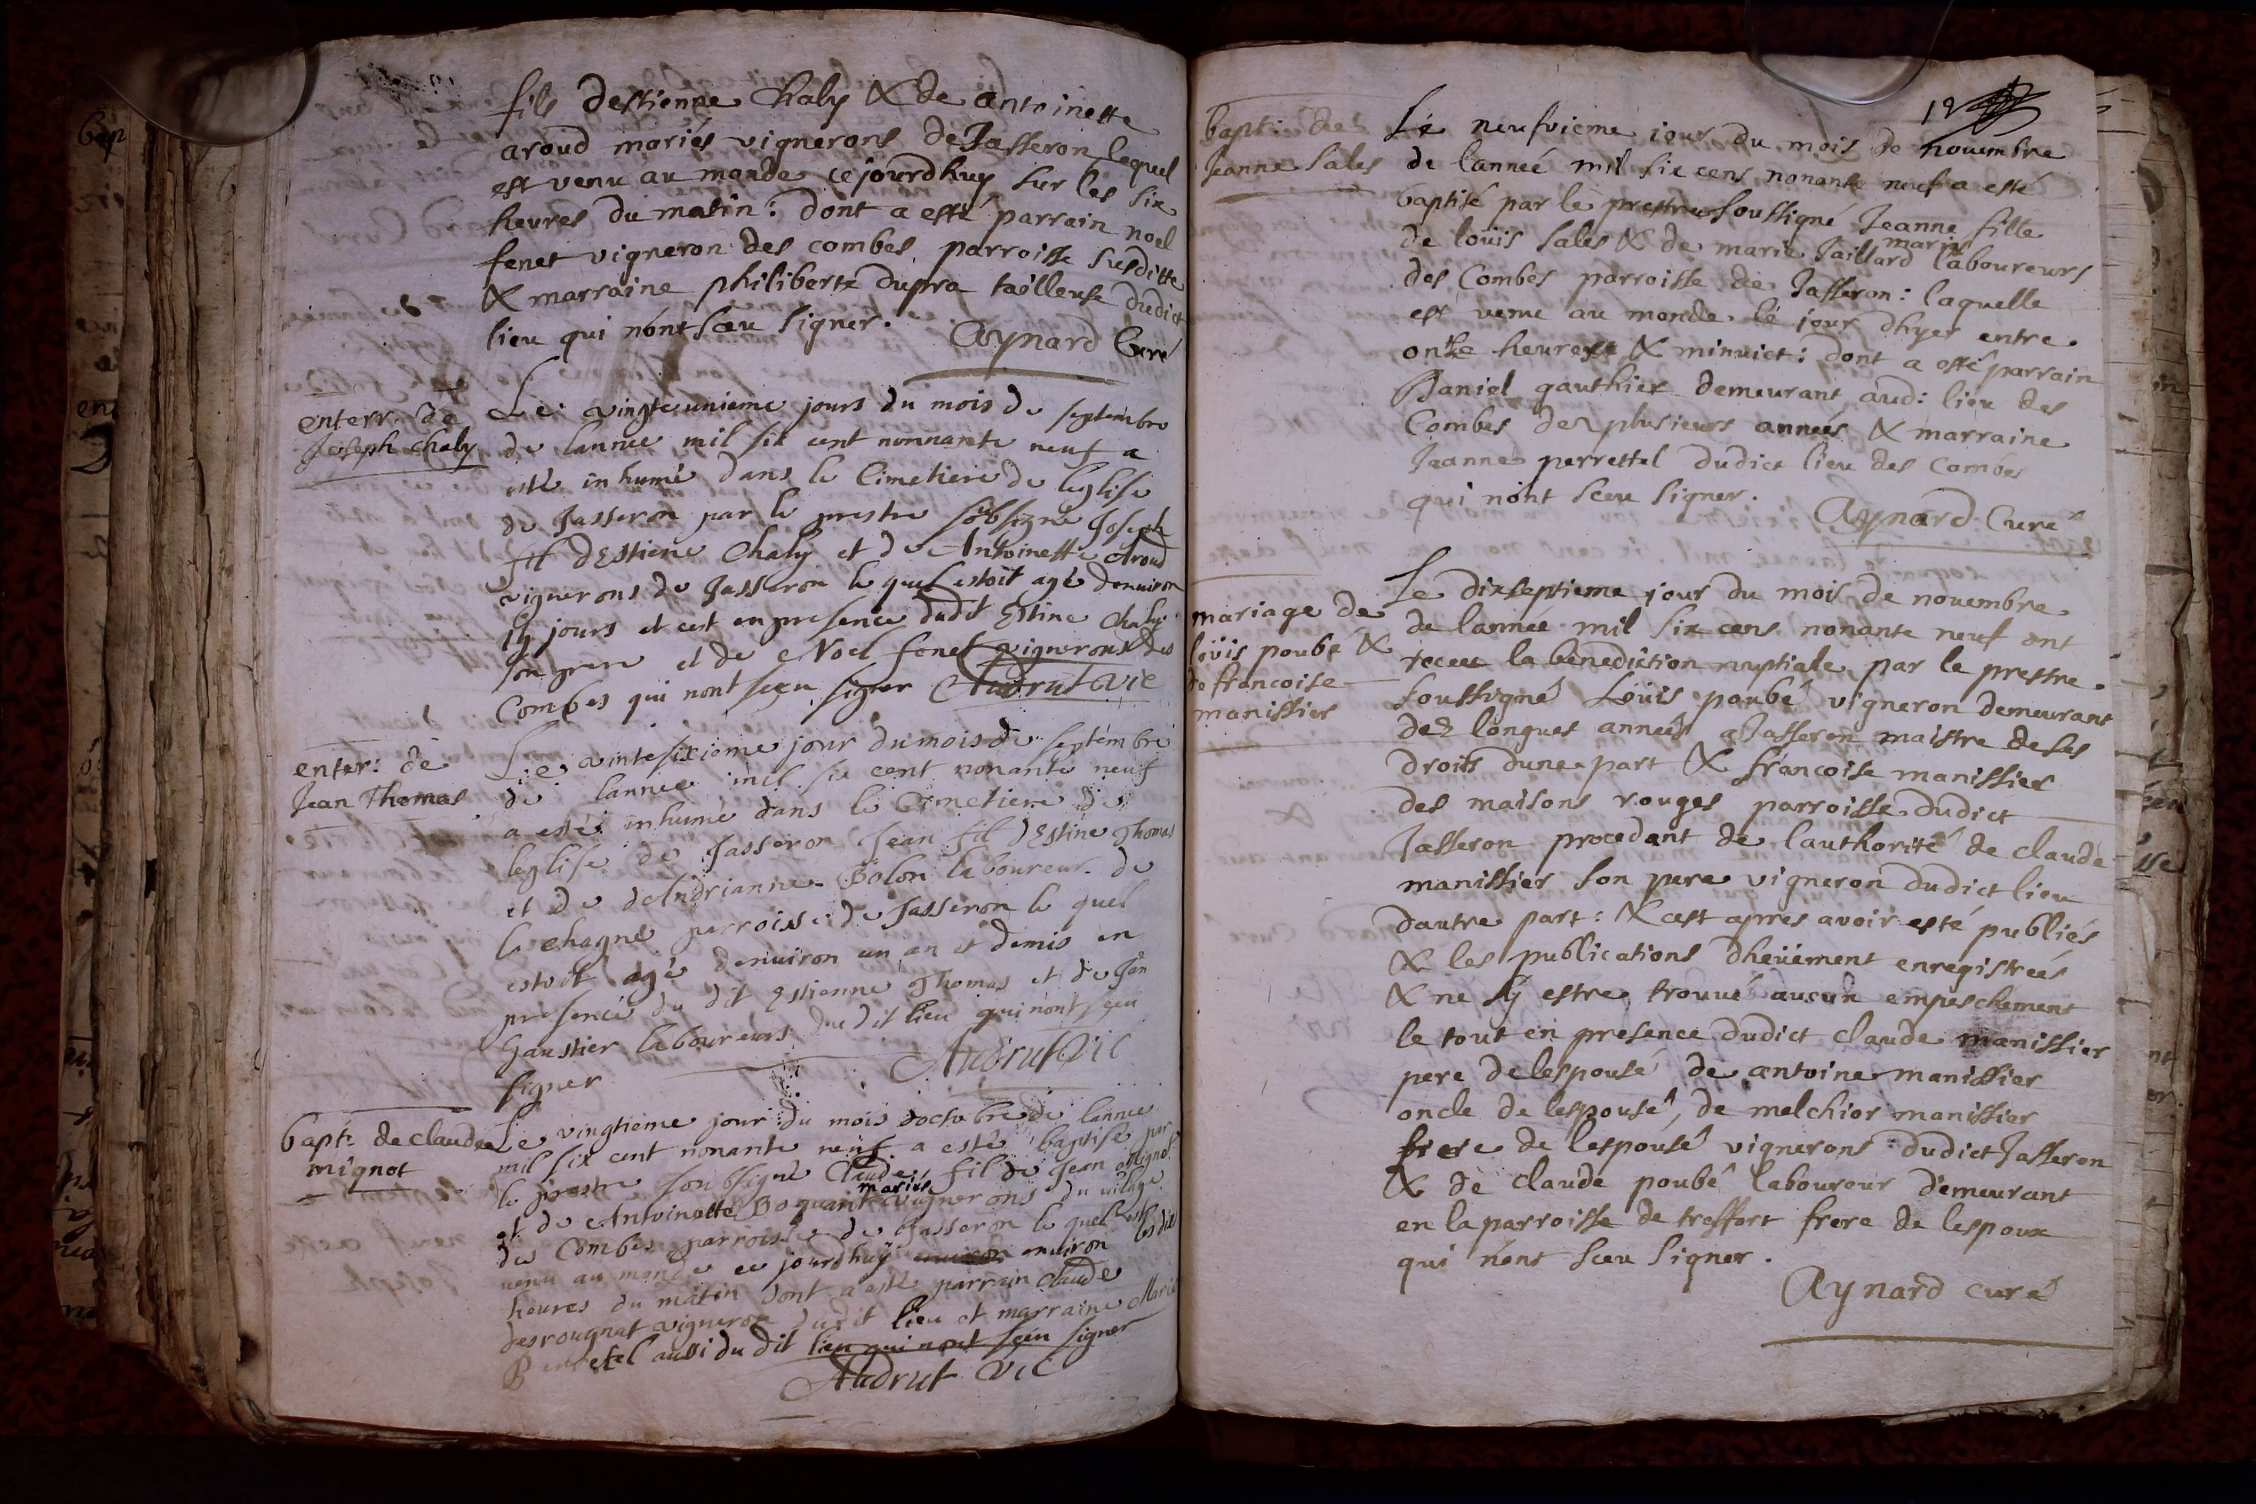 fils destienne Chaby & de antoinette
aroud mariés vignerons de Jasseron lequel
est venu au monde cejourdhuy sur les six
heures du matin: dont a esté parrain noel
fenet vigneron des combes parroisse susditte
& marraine philiberte dupra tailleuse dudict
lieu qui nont sceu signer.
Aynard Curé
enterr. de
Joseph Chaby
Le vingteunieme jours du mois de septembre
de lannee mil six cent nonnante neuf a
esté inhumé dans le Cimetiere de leglise
de Jasseron par le prestre soubsigné Joseph
fil dEstiene Chaby et de Antoinette Aroud
vignerons de Jasseron le quel estoit agé denuiron
jours et cest en presence dudit Estine Chaby
son pere et de Noel fenet vignerons des
Combes qui nont sceu signer Audrut vic
enter: de
Jean Thomas
Le vintesixieme jour du mois de septembre
de lannee mil six cent nonante neuf
a esté inhumé dans le Cimetiere de
leglise de Jasseron Jean fil dEstine Thomas
et de Andrianne Bolon laboureur de
la chagne parroisse de Jasseron le quel
estoit agé denuiron un an et demis en
presence du dit Estienne Thomas et de Jan
Gaustier laboureurs du dit lieu qui nont sceu
signer
Audrut vic
bapt: de claude
mignot
Le vingtieme jour du mois doctobre de lannee
mil six cent nonante neuf a esté baptisé par
le prestre soubsigné Claude fil de Jean mignot
mariés
et de Antoinette Boquant vignerons du village
des Combes parroisse de Jasseron le quel est
venu au monde ce jourdhuy enuiron les dix
heures du matin dont a esté parrain claude
desrougnat vigneron dudit lieu et marraine Marie
Perretel aussi du dit lieu qui nont sceu signer
Audrut vic
12
bapti: de
Jeanne sales
Le neufvieme jour du mois de nouembre
de lanneé mil six cens nonante neuf a esté
baptisé par le prestre soussigné Jeanne fille
mariés
de loüis sales & de marie Jaillard laboureurs
des Combes parroisse de Jasseron: laquelle
est venue au monde le jour dhyer entre
onze heures & minuict: dont a esté parrain
Daniel gauthier demeurant aud: lieu des
Combes dez plusieurs anneés & marraine
Jeanne perrettel dudict lieu des Combes
qui nont sceu signer.
Aynard Curé
mariage de
loüis poubé &
de francoise
manissier
Le dixseptieme jour du mois de nouembre
de lanneé mil six cens nonante neuf ont
receu la benediction nuptiale par le prestre
soussigné Loüis poubé vigneron demeurant
dez longues anneés a Jasseron maistre de ses
droits dune part & francoise manissier
des maisons rouges parroisse dudict
Jasseron procedant de lauthorité de claude
manissier son pere vigneron dudict lieu
dautre part: & cest apres avoir esté publiés
& les publications dheüement enregistreés
& ne sy estre trouué aucun empeschement
le tout en presence dudict claude manissier
pere de lespousé de antoine manissier
oncle de lespousé, de melchior manissier
frere de lespousé vignerons dudict Jasseron
& de claude poubé laboureur demeurant
en la parroisse de treffort frere de lespoux
qui nont sceu signer.
Aynard curé